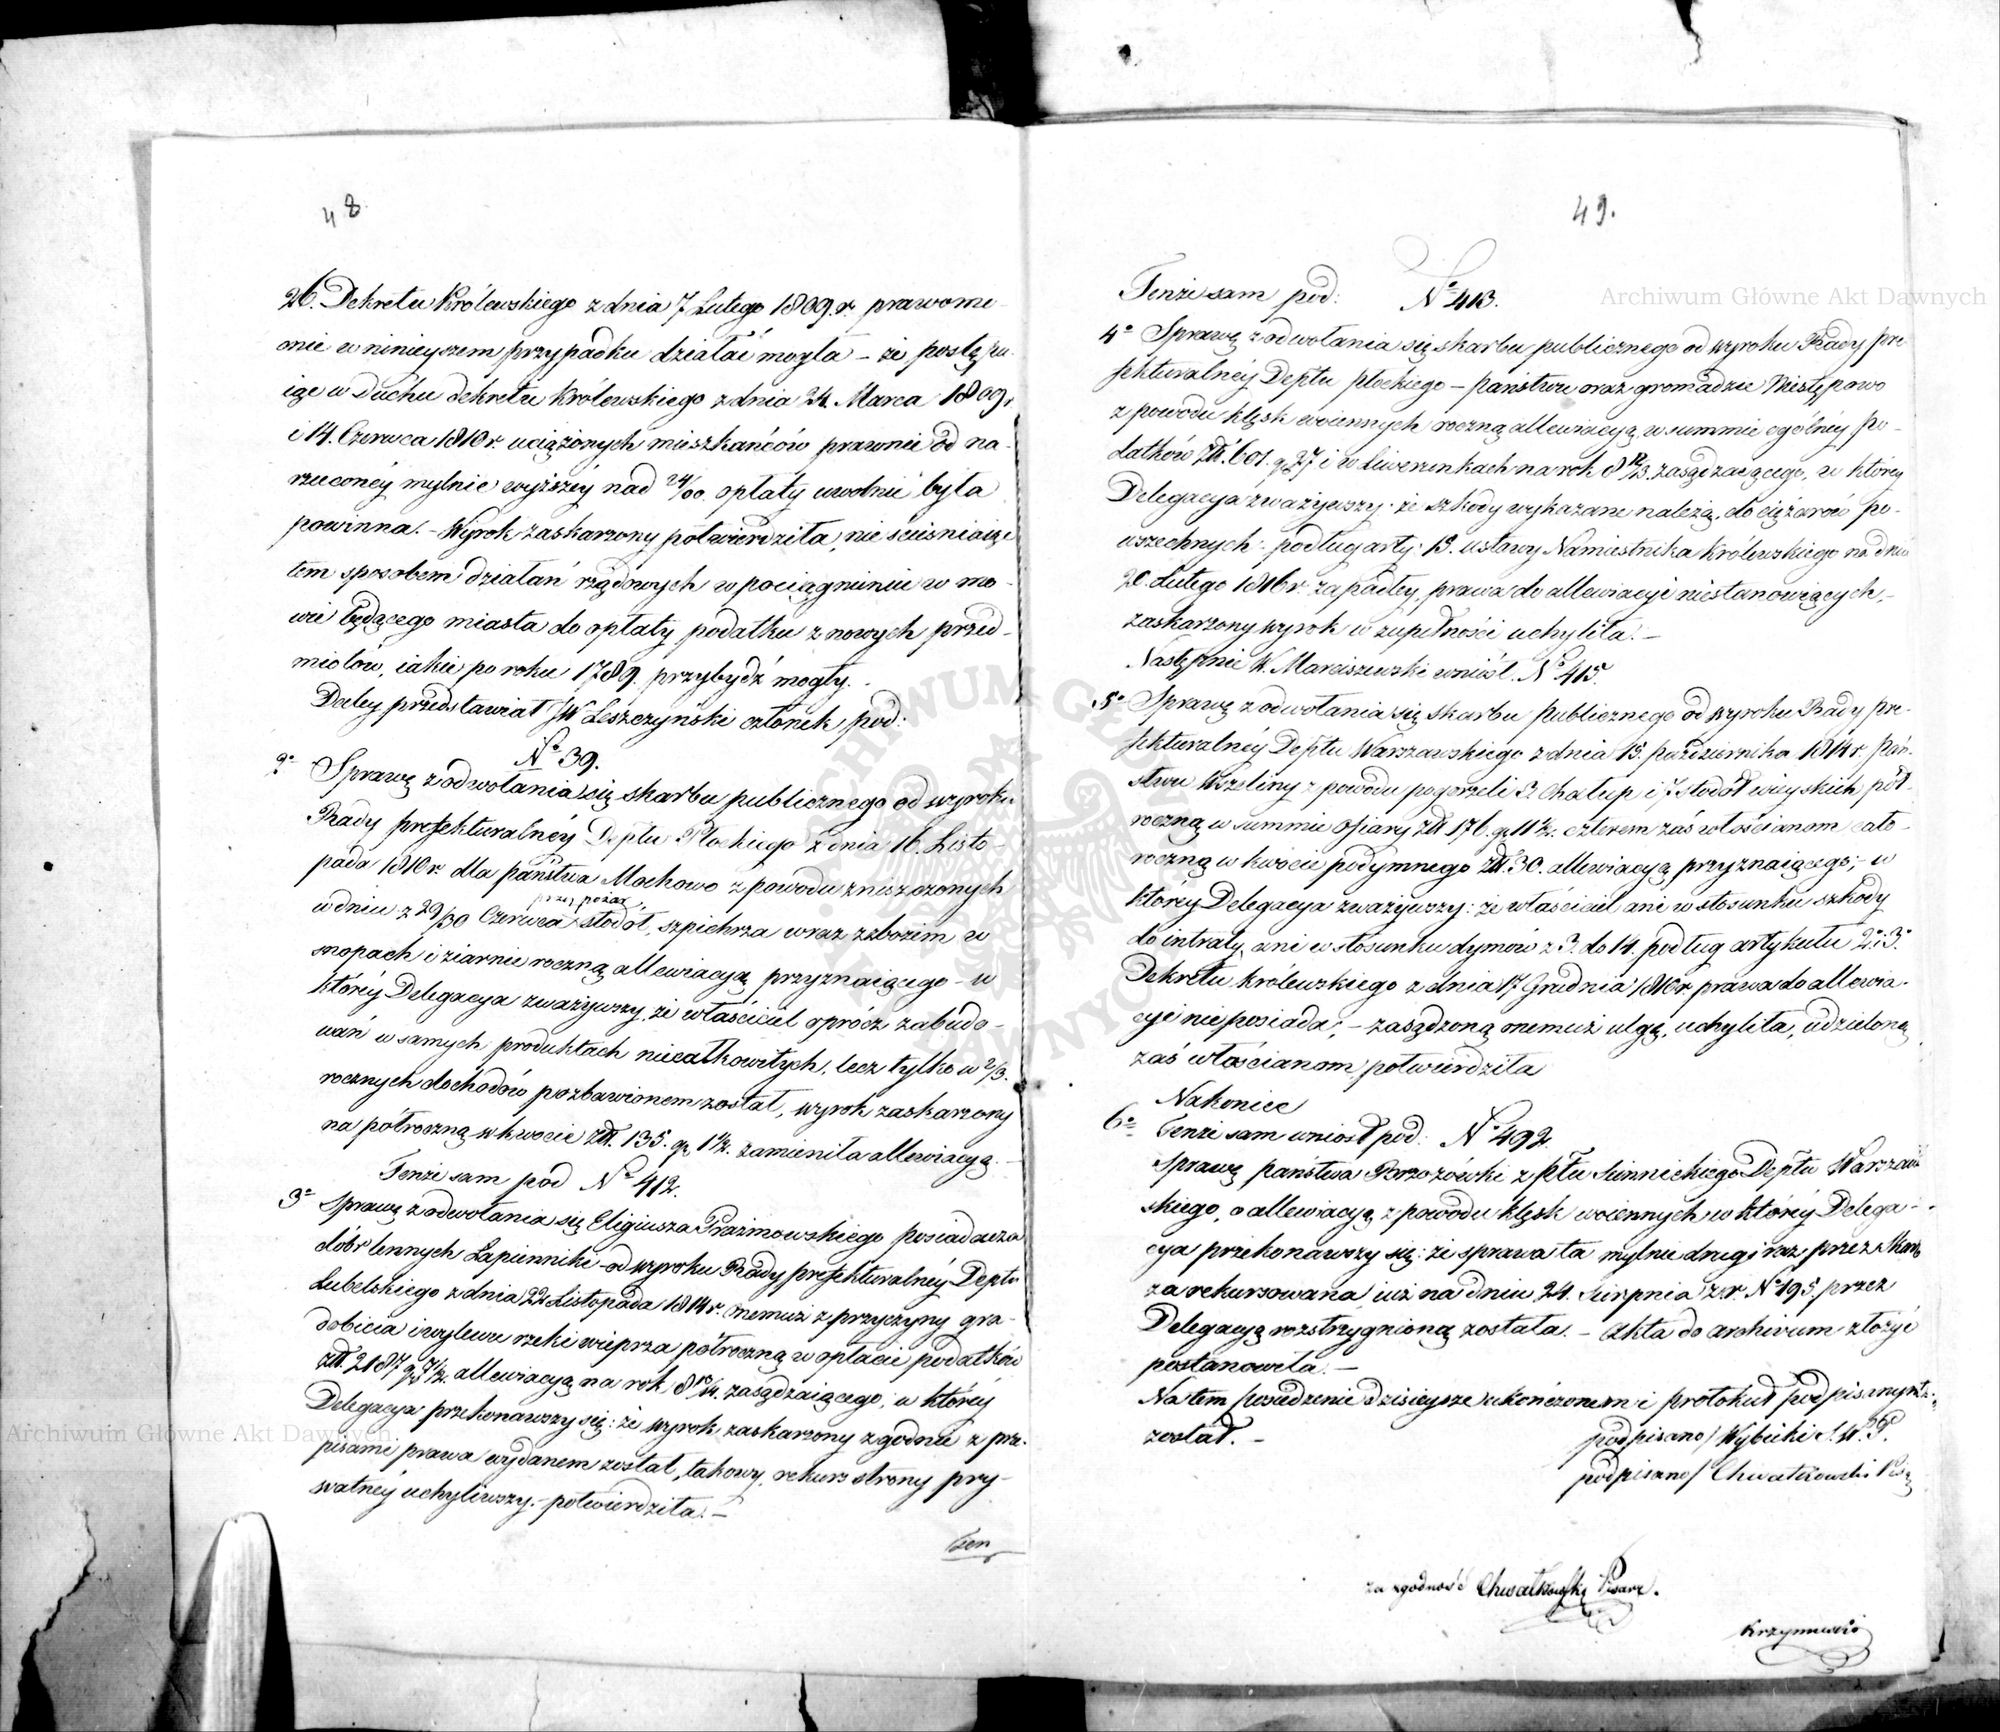 48
26. Dekretu Królewskiego z dnia 7 Lutego 1809. r. prawomo-
cnie w ninieyszem przypadku działać mogła – że postępu-
iąc w Duchu dekretu Królewskiego z dnia 24. Marca 1809 r
i 14. Czerwca 1810 r. uciążonych mieszkańców prawnie od na-
rzuconéy mylnie wyższéy nad 24/00 opłaty uwolnić była
powinna. – Wyrok zaskarżony potwierdziła, nie ścieśniaiąc
tem sposobem działań rządowych w pociągnieniu w mo-
wie będącego miasta do opłaty podatku z nowych przed-
miotów, iakie po roku 1789. przybydź mogły. –
Daley przedstawiał JW Leszczyński członek pod:
No 39.
2o Sprawę z odwołania się skarbu publicznego od wyroku
Rady prefekturalnéy Deptu Płockiego z dnia 16. Listo-
pada 1810 r. dla państwa Mochowo z powodu zniszczonych
przez pożar
w dniu z 29/30 Czerwca stodół, szpichrza wraz z zbożem w
snopach i ziarnie roczną allewiacyą przyznaiącego – w
któréy Delegacya zważywszy, że właściciel oprócz zabudo-
wań w samych produktach niecałkowitych, lecz tylko w 2/3.
rocznych dochodów pozbawionem został, wyrok zaskarżony
na półroczną w kwocie złł. 135. gr 1 1/2. zamieniła allewiacyą. –
Tenże sam pod No 412.
3o Sprawę z odwołania się Eligiusza Prażmowskiego posiadacza
dóbr lennych Łapiennike – od wyroku Rady prefekturalnéy Deptu
Lubelskiego z dnia 22 Listopada 1814 r. onemuż z przyczyny gra-
dobicia i wylewu rzeki wieprza półroczną w opłacie podatków
złł. 2187 gr 7 1/2. allewiacyą na rok 8 13/14. zasądzaiącego, w któréy
Delegacya przekonawszy się: że wyrok zaskarżony zgodnie z prze-
pisami prawa wydanem został, takowy, rekurs strony pry-
watnéy uchyliwszy. – potwierdziła. –
Ten
49.
Tenże sam pod: No 413.
4o Sprawę z odwołania się skarbu publicznego od wyroku Rady pre-
fekturalnéy Deptu płockiego – państwu oraz gromadzie Niestępowo
z powodu klęsk woiennych roczną allewiacyą, w summie ogólnéy po-
datków złł. 601. gr 27 i w liwerunkach na rok 8 12/13. zasądzaiącego, w któréy
Delegacya zważywszy: że szkody wykazane należą, do ciężarów po-
wszechnych: podług arty: 13. ustawy Namiestnika Królewskiego na dniu
20. Lutego 1816 r. zapadłey, prawa do allewiacyi niestanowiących, –
zaskarżony wyrok w zupełności uchyliła. –
Następnie W. Marciszewski wniósł. No 415.
5o Sprawę z odwołania się skarbu publicznego od wyroku Rady pre-
fekturalnéy Deptu Warszawskiego z dnia 15. października 1814 r. pań-
stwu Kszeliny z powodu pogorzeli 3 chałup i 7 stodół wieyskich pół-
roczną w summie ofiary złł 176. gr 11 1/2. czterem zaś włościanom cało-
roczną w kwocie podymnego złł. 30. allewiacyą przyznaiącego; – w
któréy Delegacya zważywszy: że właściciel ani w stosunku szkody
do intraty, ani w stosunku dymów z 3. do 14. podług artykułu 2o i 3o
Dekretu królewskiego z dnia 17 Grudnia 1810 r prawa do allewia-
cyi nie posiada; – zasądzoną onemuż ulgę, uchyliła, udzieloną
zaś włościanom, potwierdziła
Nakoniec
6o Tenże sam wniosł pod: No 492.
Sprawę państwa Brzozówki z płtu Siennickiego Deptu Warszaw-
skiego, o allewiacyą z powodu klęsk woiennych w któréy Delega-
cya przekonawszy się: że sprawa ta mylnie drugi raz przez Skarb
zarekursowana, iuż na dniu 24. Sierpnia z. r. No 195. przez
Delegacyą rozstrzygnioną została. – Akta do archivum złożyć
postanowiła. –
Na tem posiedzenie dzisieysze ukończonem i protokuł podpisanym
został. –
podpisano/ Wybicki S. W. P.
podpisano/ Chwałkowski Pisz
za zgodność Chwałkowski Pisarz.
Krzymuski
Archiwum Główne Akt Dawnych
Archiwum Główne Akt Dawnych